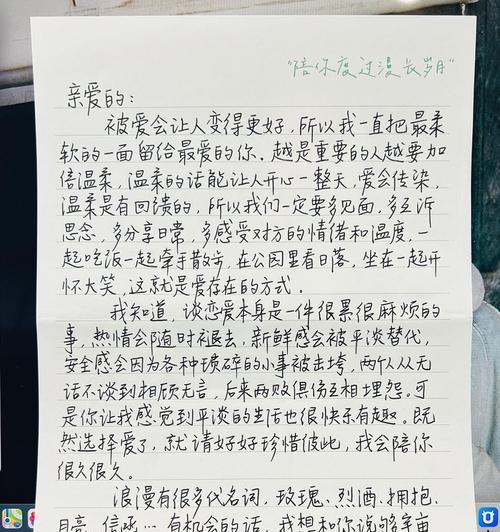 "陪你度过漫长岁月"
亲爱的:
被爱会让人变得更好,所以我一直把最柔
软的一面留给最爱的你.越是重要的人越要加
倍温柔,温柔的话能让人开心一整天,爱会传染,
温柔是有回馈的,所以我们一定要多见面,多互诉
思念,多分享日常,多感受对方的情绪和温度,一
起吃饭一起牵手散步,在公园里看日落,坐在一起开
怀大笑,这就是爱存在的方式.
我知道,谈恋爱本身是一件很累很麻烦的
事,热情会随时褪去,新鲜感会被平淡替代,
安全感会因为各种琐碎的小事被击垮,两个人从无
话不谈到相顾无言,后来两败俱伤互相埋怨.可
是你让我感觉到平淡的生活也很快乐有趣。既
然选择爱了,就请好好珍惜彼此,我会陪你
很久很久。
浪漫有很多代名词,玫瑰、烈酒、拥抱、
月亮、信函…有机会的话,我想和你说